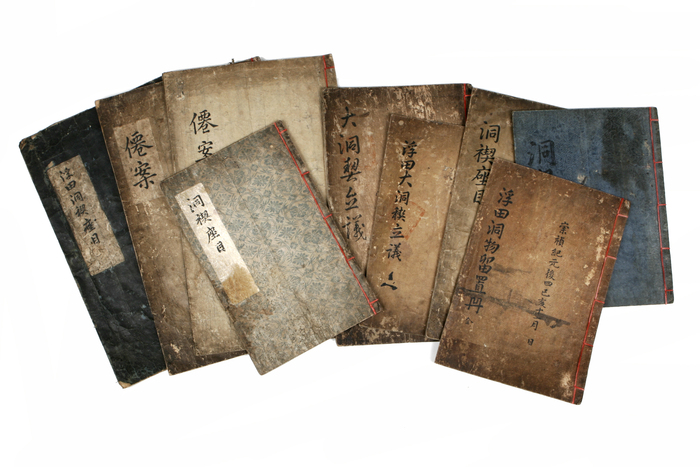 浮田洞禊座目
僊案
僊案
洞禊座目
大洞契立議
浮田大洞禊立議
洞禊座目
浮田洞物留置冊
崇禎紀元後四己亥十一月 日
洞